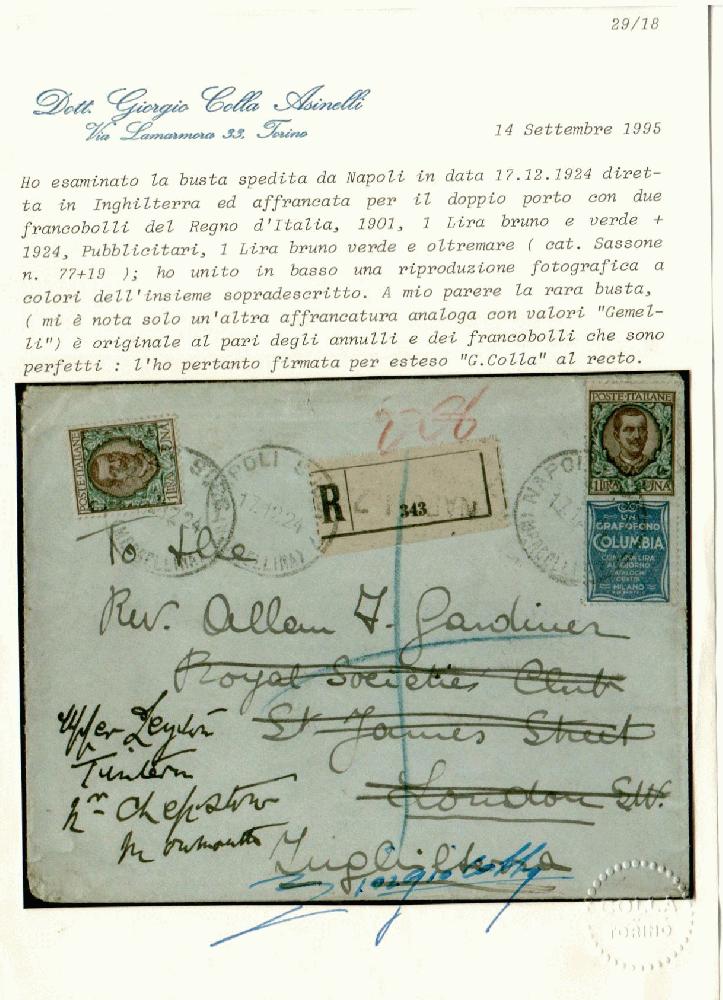 29/18
Dott. Giorgio Colla Asinelli
Via Lamarmora 33, Torino
14 Settembre 1995
Ho esaminato la busta spedita da Napoli in data 17.12.1924 diret-
ta in Inghilterra ed affrancata per il doppio porto con due
francobolli del Regno d'Italia, 1901, 1 Lira bruno e verde +
1924, Pubblicitari, 1 Lira bruno verde e oltremare ( cat. Sassone
n. 77+19 ); ho unito in basso una riproduzione fotografica a
colori dell'insieme sopradescritto. A mio parere la rara busta,
( mi è nota solo un'altra affrancatura analoga con valori "Gemel-
li") è originale al pari degli annulli e dei francobolli che sono
perfetti : l'ho pertanto firmata per esteso "G.Colla" al recto.
POSTE ITALIANE
1 LIRA UNA
NAPOLI
17.12.24
R
343
POSTE ITALIANE
1 LIRA UNA
NAPOLI
UN
GRAFOFONO
COLUMBIA
CON UNA LIRA
AL GIORNO
MILANO
To the
Rev. Allen F. Gardiner
Royal Societies Club
St James Street
London S.W.
Inghilterra
Upper Leyton
Tintern
nr Chepstow
Monmouth
COLLA
TORINO